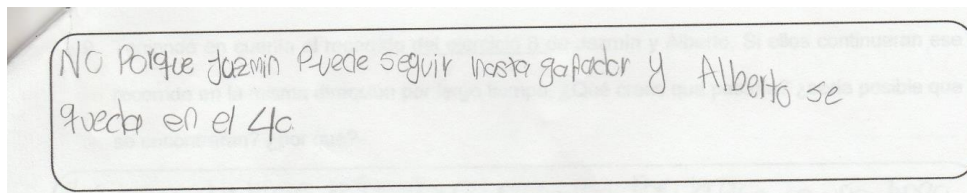 No Porque Jazmin Puede seguir hasta ganador y Alberto se
queda en el 40